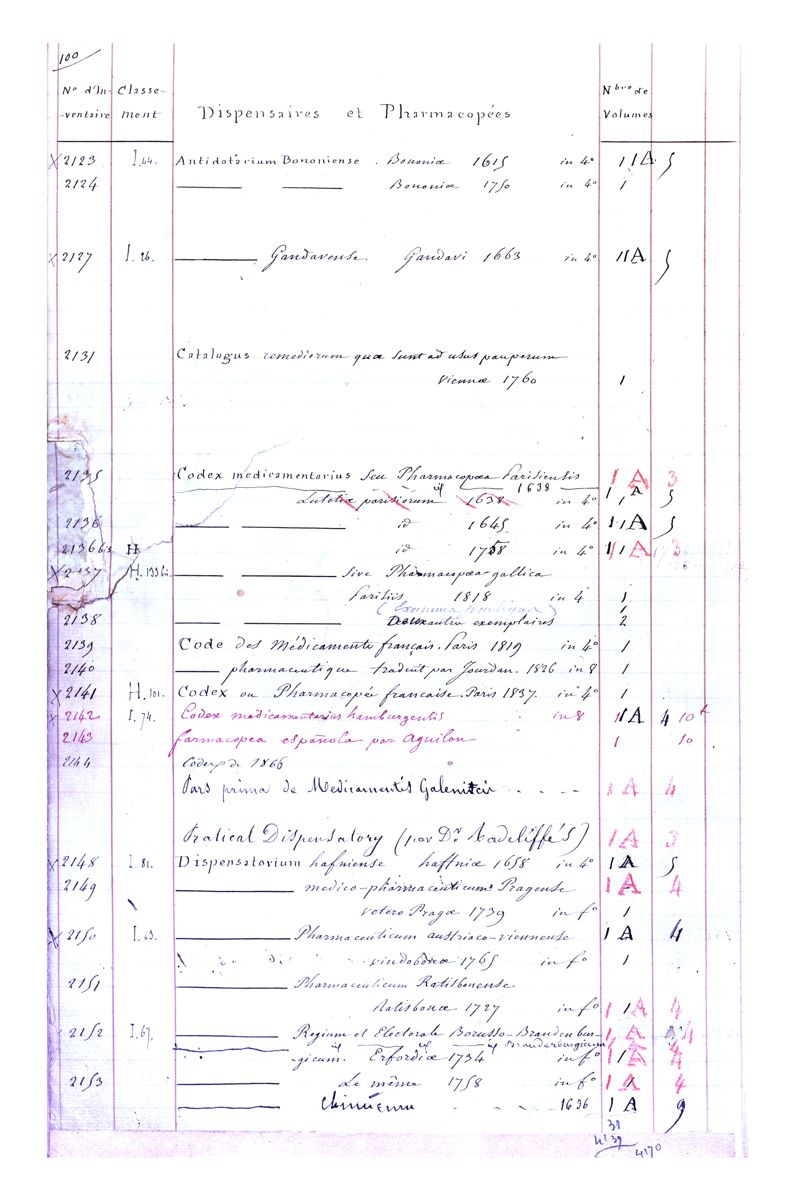 100
N° d'In- Classe- Nbre de
-ventaire ment Dispensaires et Pharmacopées Volumes
X 2123 I.44. Antidotarium Bononiense. Bononiæ 1615 in 4° 1 1 A 5
2124 —— —— Bononiæ 1750 in 4° 1
X 2127 I.26. —— Gandavense. Gandavi 1663 in 4° 1 1 A 5
2131 Catalogus remediorum quæ sunt ad usus pauperum
viennæ 1760 1
2135 Codex medicamentorius seu Pharmacopœa Parisiensis 1 A 3
—— id 1638 1 A
Lutetiæ parisiorum 1638 in 4° 1 5
2136 —— —— id 1645 in 4° 1 1 A 5
2136 bis H id 1758 in 4° 1 1 A 3
X 2137 H. —— —— sive Pharmacopœa gallica
Parisiis 1818 in 4° 1
2138 —— —— Deux autres exemplaires 2
2139 Code des Médicaments français. Paris 1819 in 4° 1
2140 —— pharmaceutique traduit par Jourdan. 1826 in 8 1
X 2141 H.101. Codex ou Pharmacopée francaise. Paris 1837. in 4° 1
X 2142 I.74. Codex medicamentarius hamburgensis in 8 1 A 4 10
2143 farmacopea española por Aguilon 1 10
2144 Codex de 1866
Pars prima de Medicamentis Galenicis . - - - A 4
Pratical Dispensatory (par Dr. Radcliffe's) 1 A 3
X 2148 I.81. Dispensatorium hafniense haffniæ 1658 in 4° 1 A 5
2149 —— medico-pharmaceuticum Pragense 1 A 4
vetero Pragæ 1739 in f° 1
X 2150 I.63. —— Pharmaceuticum austriaco-viennense 1 A 4
vindobonæ 1765 in f° 1
2151 —— Pharmaceuticum Ratisbonense
Ratisbonæ 1727 in f° 1 1 A 4
X 2152 I.67. —— Regium et Electorale Borusso-Brandenbur- 1 A 4
—— id —— id Branderburgicum
-gicum. Erfordiæ 1734 in f° 1 1 A 4
2153 —— Le même 1758 in f° 1 A 4
—— 1636 1 A 9
39
4139
4170